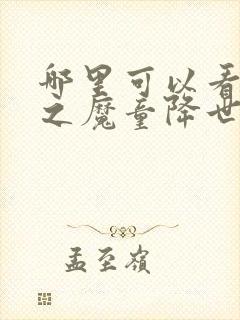 哪里可以看
之魔童降世
孟至岭